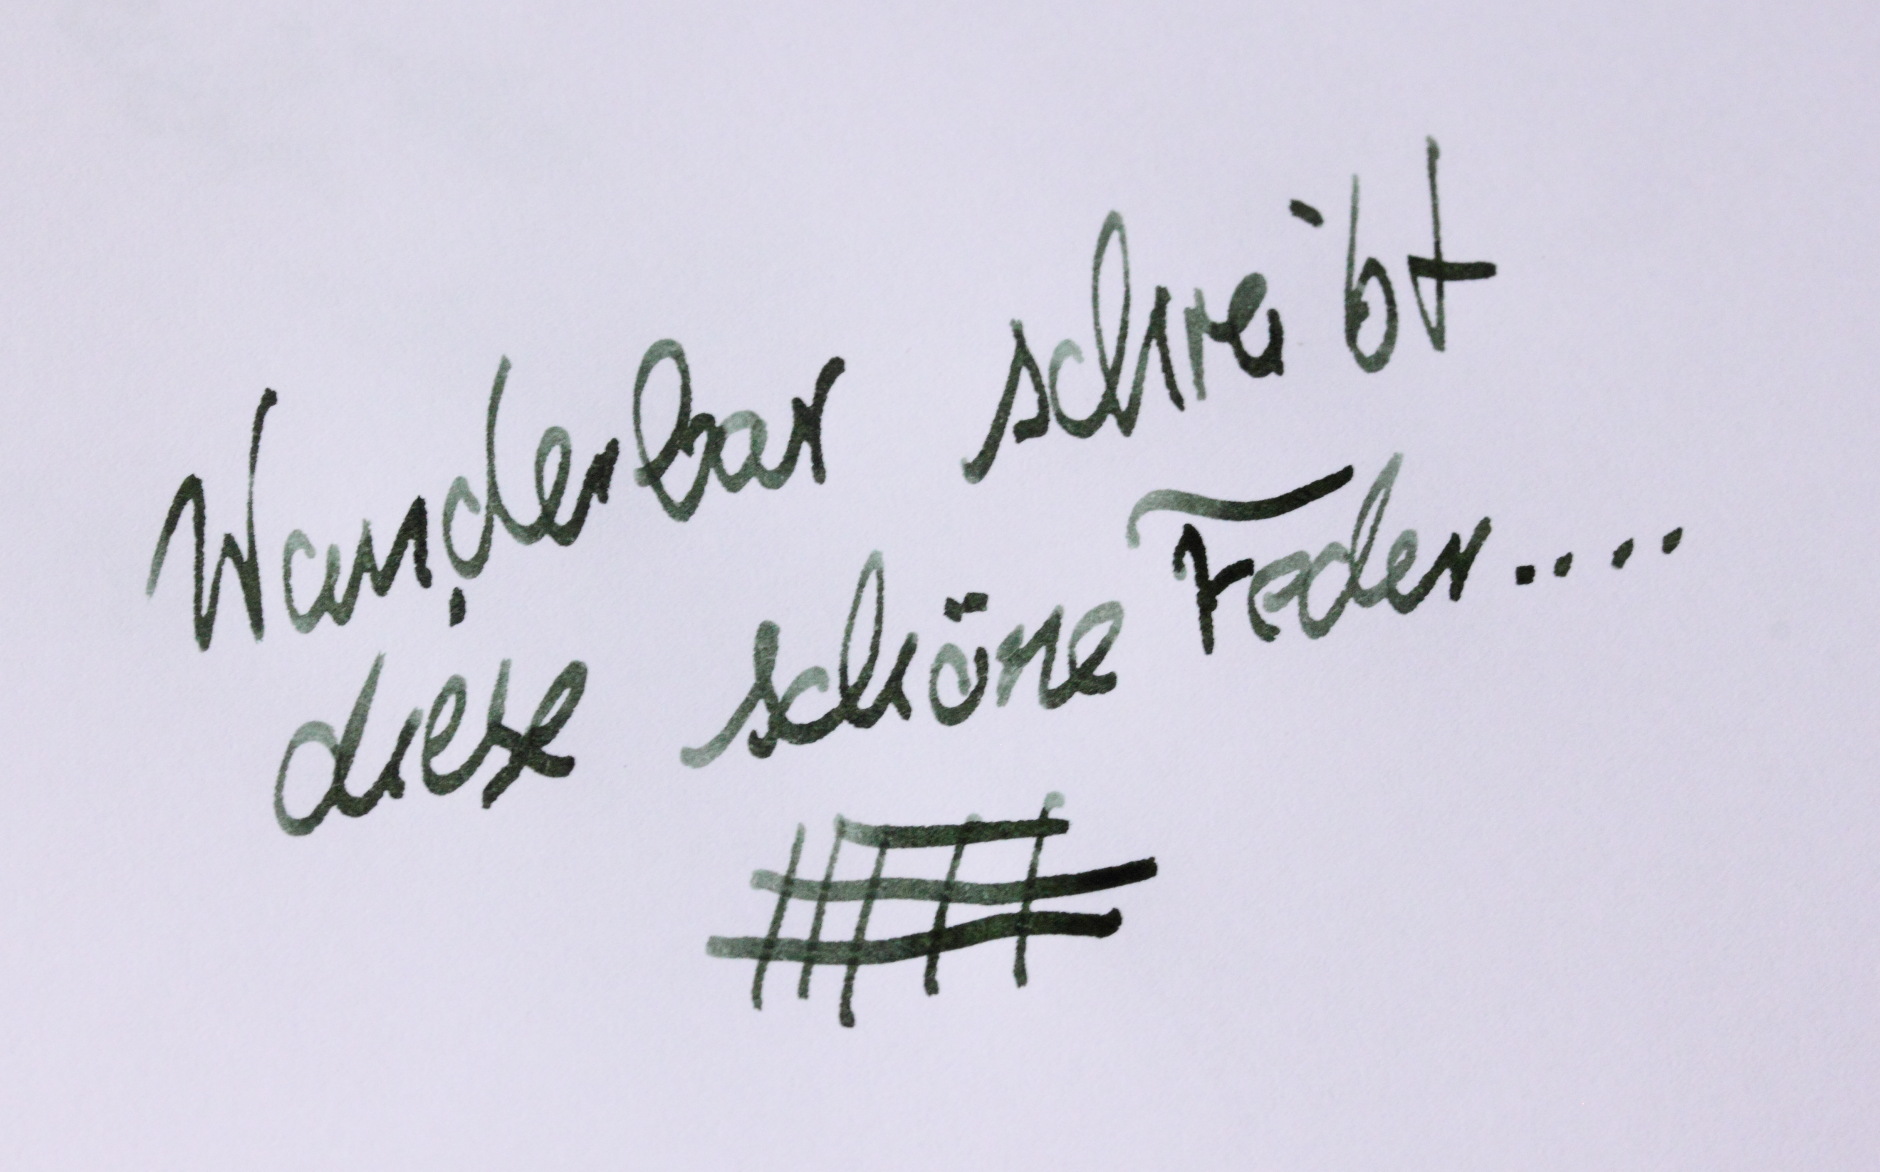 Wunderbar schreibt
diese schöne Feder....